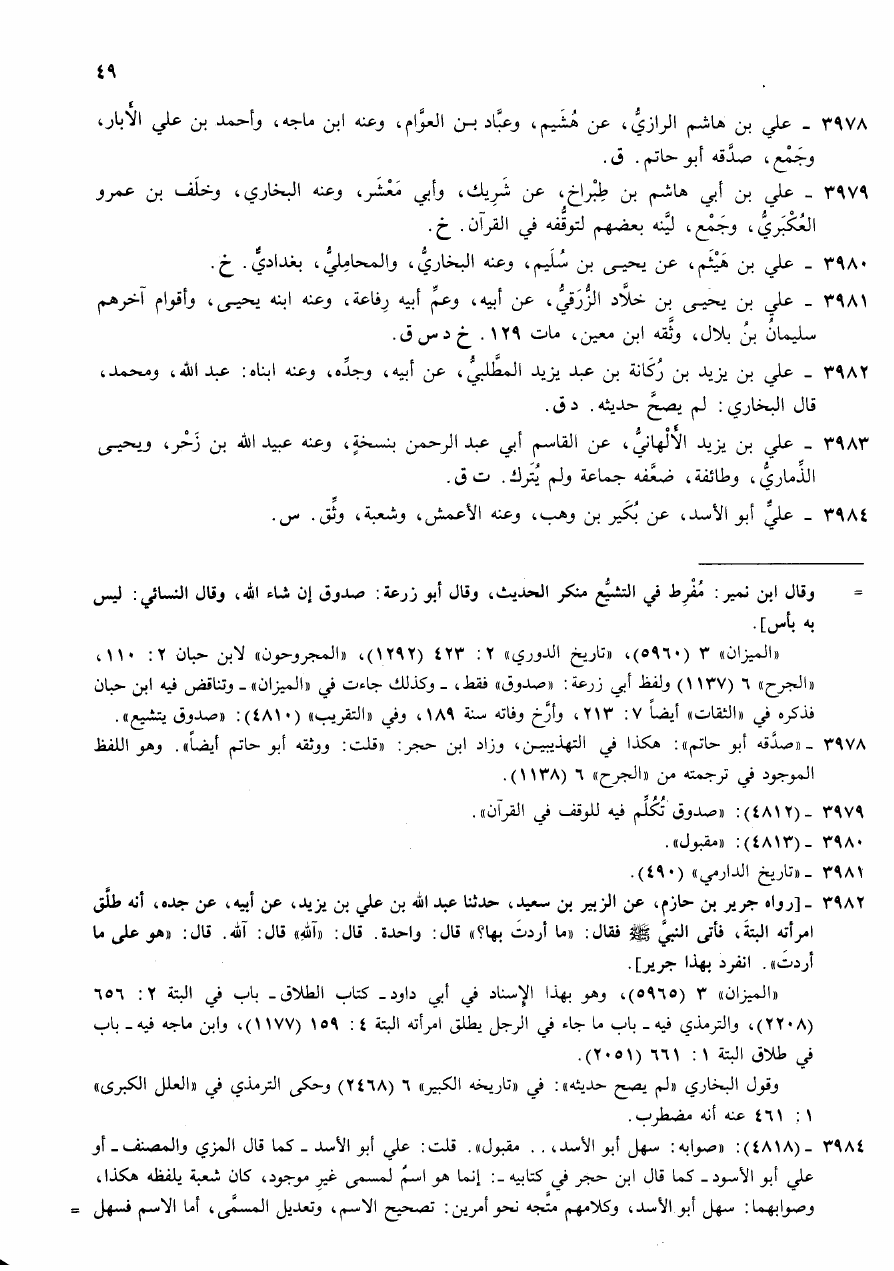 ٤٩
٣٩٧٨ ـ علي بن هاشم الرازيُّ، عن هُشَيم، وعبَّاد بن العوَّام، وعنه ابن ماجه، وأحمد بن علي الأبار،
وجَمْع، صدَّقه أبو حاتم. ق.
٣٩٧٩ ـ علي بن أبي هاشم بن طِبْراخ، عن شَرِيك، وأبي مَعْشَر، وعنه البخاري، وخلَف بن عمرو
العُكْبَريُّ، وجَمْع، ليَّنه بعضهم لتوقُّفه في القرآن. خ.
٣٩٨٠ ـ علي بن هَيْثم، عن يحيى بن سُلَيم، وعنه البخاريُّ، والمحامِليُّ، بغداديٌّ. خ.
٣٩٨١ ـ علي بن يحيى بن خلَّاد الزُّرَقيُّ، عن أبيه، وعمِّ أبيه رِفاعة، وعنه ابنه يحيى، وأقوام آخرهم
سليمانُ بنُ بلال، وثَّقه ابن معين، مات ١٢٩. خ د س ق.
٣٩٨٢ ـ علي بن يزيد بن رُكَانة بن عبد يزيد المطَّلبيُّ، عن أبيه، وجدِّه، وعنه ابناه: عبد الله، ومحمد،
قال البخاري: لم يصحَّ حديثه. د ق.
٣٩٨٣ ـ علي بن يزيد الأَلْهانيُّ، عن القاسم أبي عبد الرحمن بنسخةٍ، وعنه عبيد الله بن زَحْر، ويحيى
الذِّماريُّ، وطائفة، ضعَّفه جماعة ولم يُتَرك. ت ق.
٣٩٨٤ ـ عليٌّ أبو الأسد، عن بُكَير بن وهب، وعنه الأعمش، وشعبة، وثِّق. س.
= وقال ابن نمير: مُفْرِط في التشيُّع منكر الحديث، وقال أبو زرعة: صدوق إن شاء الله، وقال النسائي: ليس
به بأس].
«الميزان» ٣ (٥٩٦٠)، «تاريخ الدوري» ٢: ٤٢٣ (١٢٩٢)، «المجروحون» لابن حبان ٢: ١١٠،
«الجرح» ٦ (١١٣٧) ولفظ أبي زرعة: «صدوق» فقط، ـ وكذلك جاءت في «الميزان» ـ وتناقض فيه ابن حبان
فذكره في «الثقات» أيضاً ٧: ٢١٣، وأرَّخ وفاته سنة ١٨٩، وفي «التقريب» (٤٨١٠): «صدوق يتشيع».
٣٩٧٨ ـ «صدَّقه أبو حاتم»: هكذا في التهذيبين، وزاد ابن حجر: «قلت: ووثقه أبو حاتم أيضاً». وهو اللفظ
الموجود في ترجمته من «الجرح» ٦ (١١٣٨).
٣٩٧٩ ـ (٤٨١٢): «صدوق تُكُلِّم فيه للوقف في القرآن».
٣٩٨٠ ـ (٤٨١٣): «مقبول».
٣٩٨١ ـ «تاريخ الدارمي» (٤٩٠).
٣٩٨٢ ـ [رواه جرير بن حازم، عن الزبير بن سعيد، حدثنا عبد الله بن علي بن يزيد، عن أبيه، عن جده، أنه طلَّق
امرأته البتةَ، فأتى النبيَّ ﷺ فقال: «ما أردتَ بها؟» قال: واحدة. قال: «آللهِ» قال: آلله. قال: «هو على ما
أردتَ». انفرد بهذا جرير].
«الميزان» ٣ (٥٩٦٥)، وهو بهذا الإسناد في أبي داود ـ كتاب الطلاق ـ باب في البتة ٢: ٦٥٦
(٢٢٠٨)، والترمذي فيه ـ باب ما جاء في الرجل يطلق امرأته البتة ٤: ١٥٩ (١١٧٧)، وابن ماجه فيه ـ باب
في طلاق البتة ١: ٦٦١ (٢٠٥١).
وقول البخاري «لم يصح حديثه»: في «تاريخه الكبير» ٦ (٢٤٦٨) وحكى الترمذي في «العلل الكبرى»
١: ٤٦١ عنه أنه مضطرب.
٣٩٨٤ ـ (٤٨١٨): «صوابه: سهل أبو الأسد، .. مقبول». قلت: علي أبو الأسد ـ كما قال المزي والمصنف ـ أو
علي أبو الأسود ـ كما قال ابن حجر في كتابيه ـ: إنما هو اسمٌ لمسمى غيرِ موجود، كان شعبة يلفظه هكذا،
وصوابهما: سهل أبو الأسد، وكلامهم متَّجه نحو أمرين: تصحيح الاسم، وتعديل المسمَّى، أما الاسم فسهل =